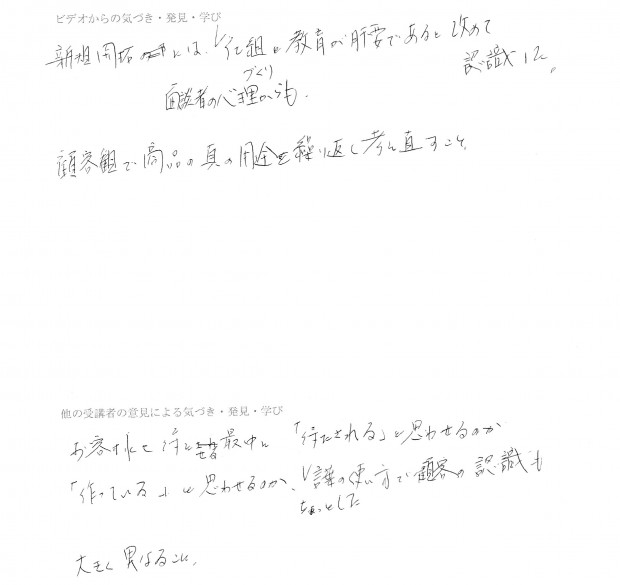 ビデオからの気づき・発見・学び
新規開拓には、仕組づくりと教育が肝要であると改めて
認識した。
面談者の心理からも。
顧客観で商品の真の用途を繰り返し考え直すこと。
他の受講者の意見による気づき・発見・学び
お客様にて待と最中に「待たされる」と思わせるのか
「作っている」と思わせるのか、ちょっとした言葉の使い方で顧客の認識も
大きく異なること。